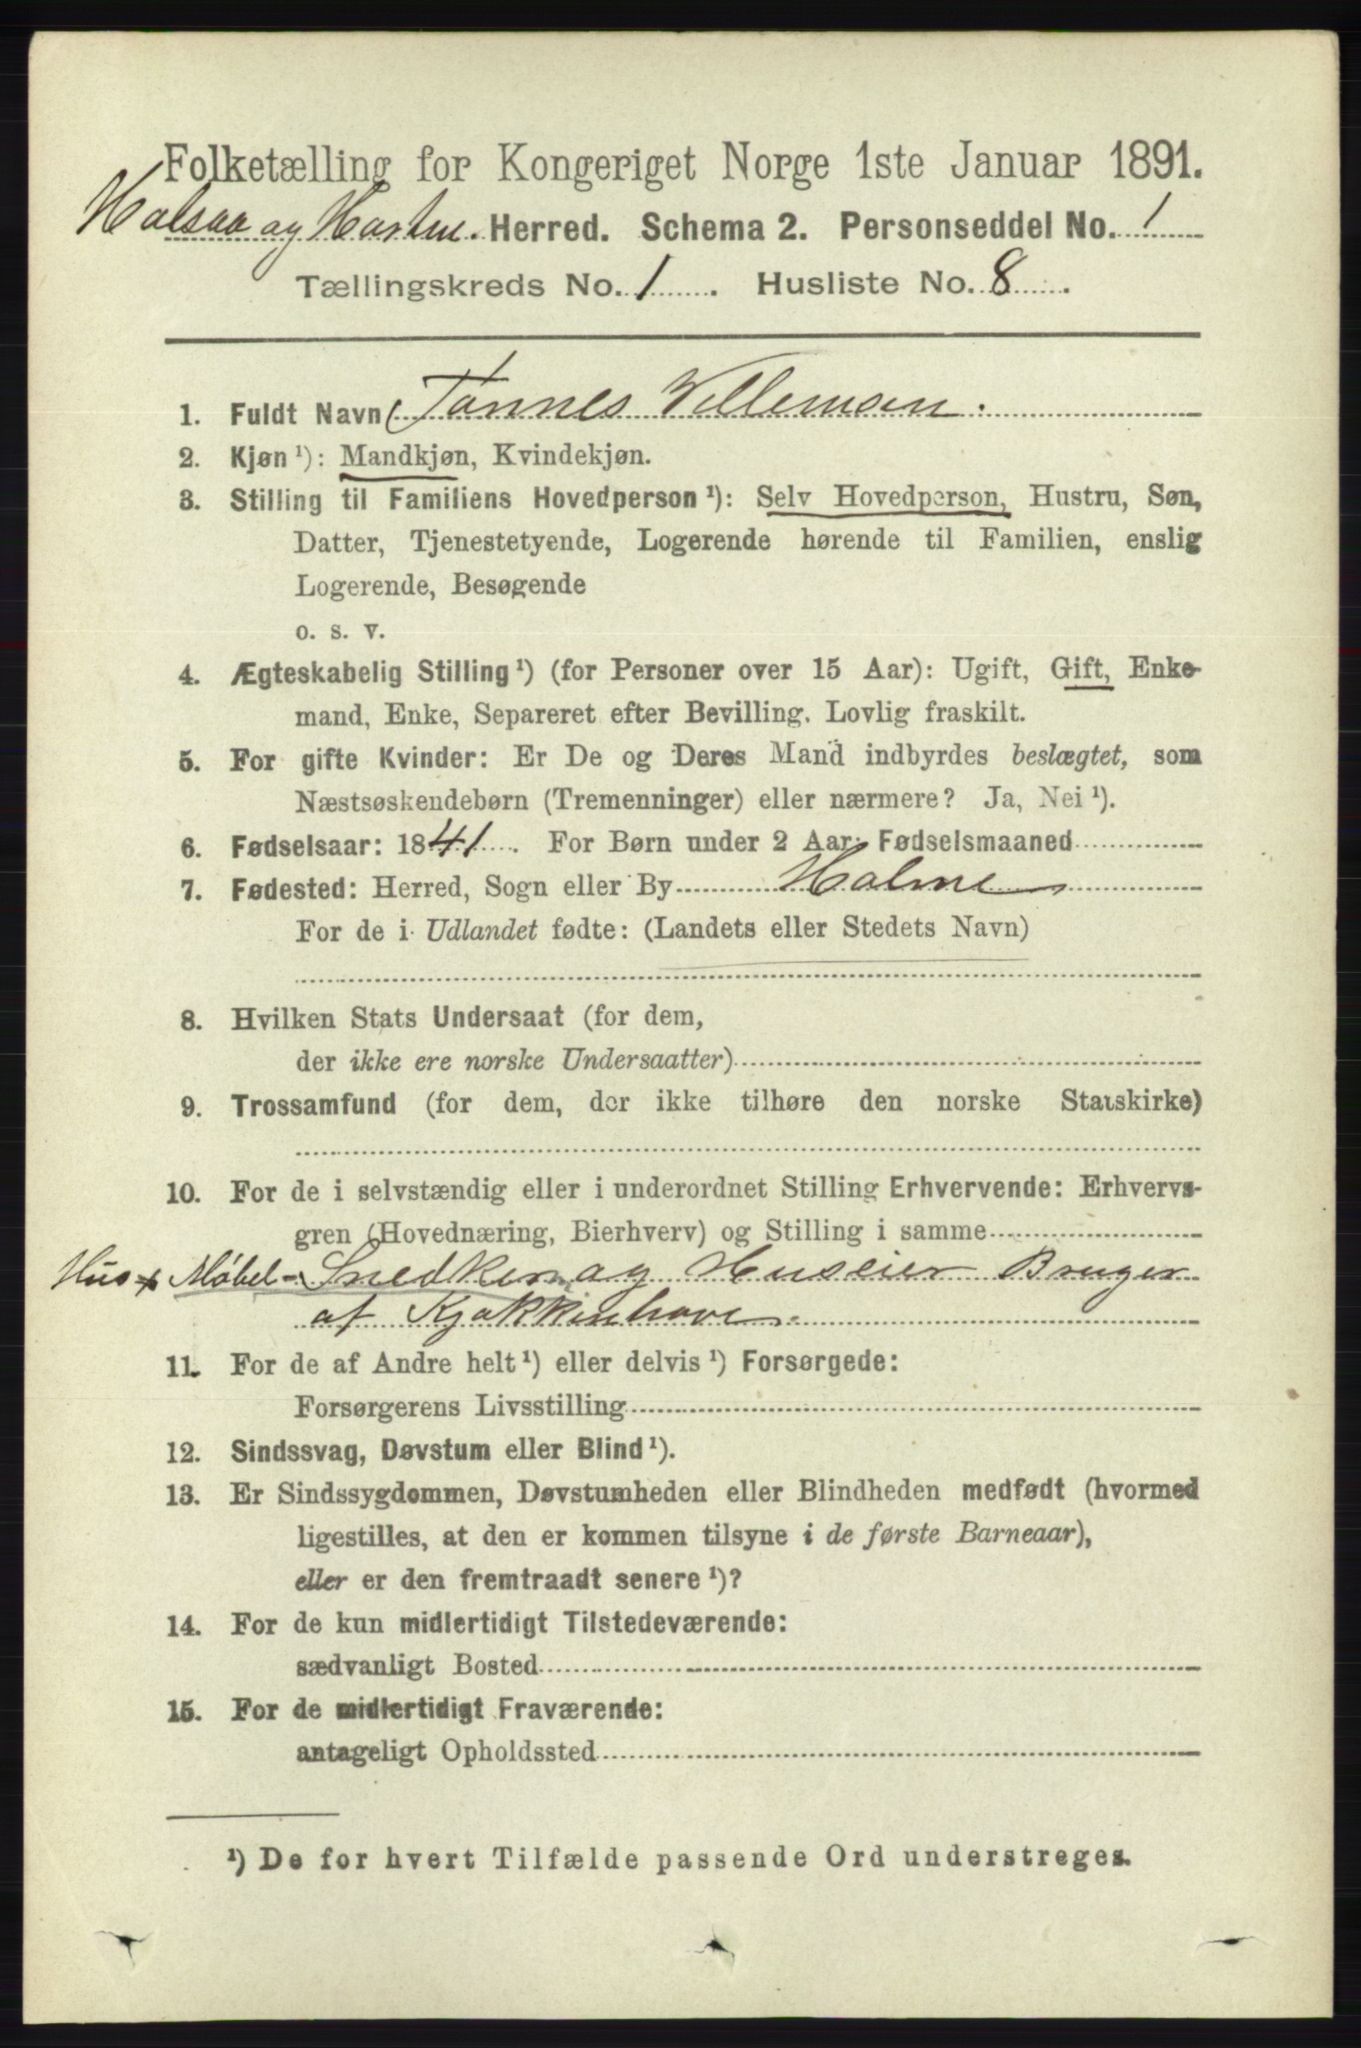 Folketælling for Kongeriget Norge 1ste Januar 1891.
Halsaa og Hartm. Herred. Schema 2. Personseddel No. 1
Tællingskreds No. 1. Husliste No. 8.
1. Fuldt Navn Tønnes Villemsen.
2. Kjøn ¹): Mandkjøn, Kvindekjøn.
3. Stilling til Familiens Hovedperson ¹): Selv Hovedperson, Hustru, Søn,
Datter, Tjenestetyende, Logerende hørende til Familien, enslig
Logerende, Besøgende
o. s. v.
4. Ægteskabelig Stilling ¹) (for Personer over 15 Aar): Ugift, Gift, Enke-
mand, Enke, Separeret efter Bevilling. Lovlig fraskilt.
5. For gifte Kvinder: Er De og Deres Mand indbyrdes beslægtet, som
Næstsøskendebørn (Tremenninger) eller nærmere? Ja, Nei ¹).
6. Fødselsaar: 1841. For Børn under 2 Aar: Fødselsmaaned
7. Fødested: Herred, Sogn eller By Holme
For de i Udlandet fødte: (Landets eller Stedets Navn)
8. Hvilken Stats Undersaat (for dem,
der ikke ere norske Undersaatter)
9. Trossamfund (for dem, der ikke tilhøre den norske Statskirke)
10. For de i selvstændig eller i underordnet Stilling Erhvervende: Erhvervs-
gren (Hovednæring, Bierhverv) og Stilling i samme
Hus x Møbel- Snedker og Huseier Bruger
af Kjøkkenhave.
11. For de af Andre helt ¹) eller delvis ¹) Forsørgede:
Forsørgerens Livsstilling
12. Sindssvag, Døvstum eller Blind ¹).
13. Er Sindssygdommen, Døvstumheden eller Blindheden medfødt (hvormed
ligestilles, at den er kommen tilsyne i de første Barneaar),
eller er den fremtraadt senere ¹)?
14. For de kun midlertidigt Tilstedeværende:
sædvanligt Bosted
15. For de midlertidigt Fraværende:
antageligt Opholdssted
¹) De for hvert Tilfælde passende Ord understreges.